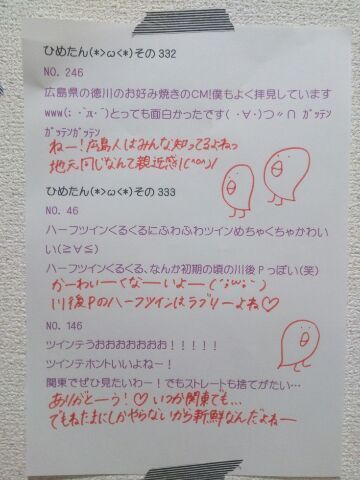 ひめたん(*>ω<*)その 332
NO. 246
広島県の徳川のお好み焼きのCM!僕もよく拝見しています
www(; ･`д･´)とっても面白かったです( ･∀･)つ〃∩ ｶﾞｯﾃﾝ
ｶﾞｯﾃﾝｶﾞｯﾃﾝ
ねー!広島人はみんな知ってるよねっ
地元同じなんて親近感!(^o^)/
ひめたん(*>ω<*)その 333
NO. 46
ハーフツインくるくるにふわふわツインめちゃくちゃかわい
い(≧∀≦)
ハーフツインくるくる、なんか初期の頃の川後Pっぽい(笑)
かーわいーくなーいよー(´;ω;`)
川後Pのハーフツインはラブリーよね♡
NO. 146
ツインテうおおおおおおお!!!!!
ツインテホントいいよねー!
関東でぜひ見たいわー!でもストレートも捨てがたい…
ありがとーう!♡いつか関東でも…
でもねたまにしかやらないから新鮮なんだよねー